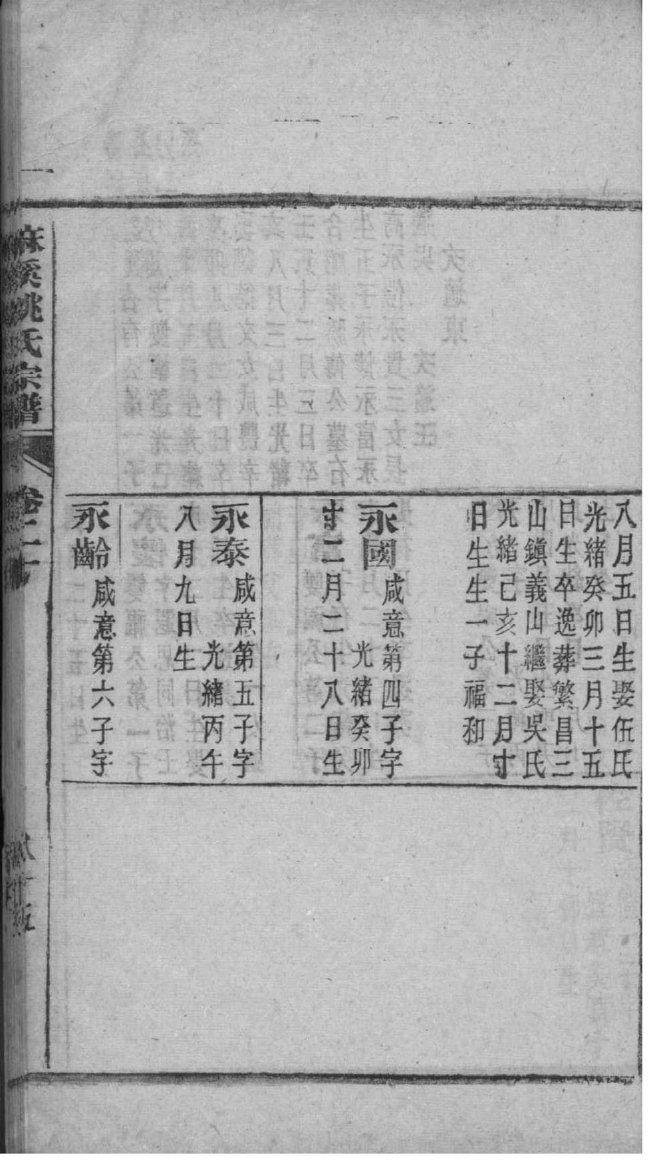 八月五日生娶伍氏
光緒癸卯三月十五
日生卒逸葬繁昌三
山鎮義山繼娶吳氏
光緒己亥十二月寸
日生生一子福和
永國咸意第四子字
光緒癸卯
十二月二十八日生
永泰咸意第五子字
光緒丙午
八月九日生
永齡咸意第六子字
麻溪姚氏宗譜
卷二十